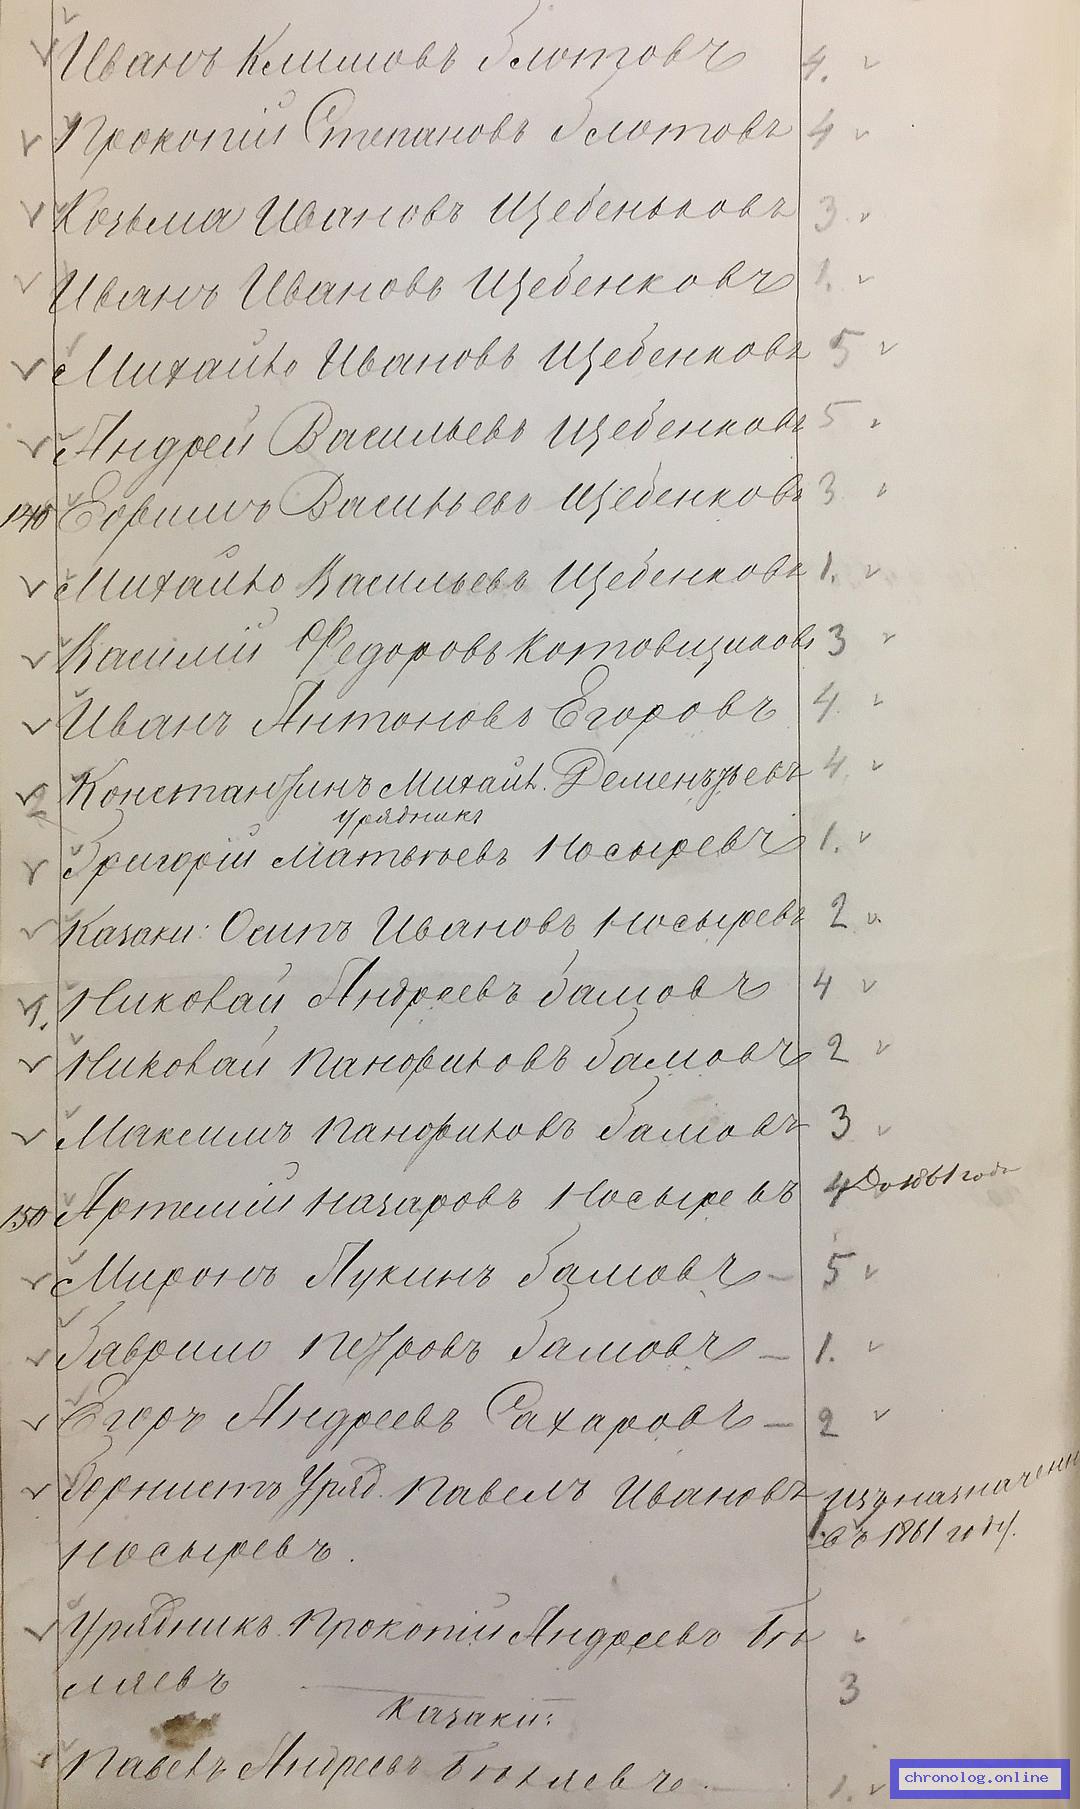 Иванъ Климовъ Глотовъ 4.
Прокопій Степановъ Глотовъ 4
Козьма Ивановъ Щебеньковъ 3
Иванъ Ивановъ Щебенковъ 1.
Михайло Ивановъ Щебенковъ 5
Андрей Васильевъ Щебенковъ 5
140 Ефимъ Васильевъ Щебенковъ 3
Михайло Васильевъ Щебенковъ 1.
Василій Федоровъ Котовщиковъ 3
Иванъ Антоновъ Егоровъ 4
Константинъ Михайл. Дементьевъ 4
Урядникъ
Григорій Матвѣевъ Носыревъ 1.
Казаки: Осипъ Ивановъ Носыревъ 2
Николай Андреевъ Замовъ 4
Николай Панфиловъ Замовъ 2
Максимъ Панфиловъ Замовъ 3
150 Артемій Назаровъ Носыревъ 4 До 1861 года
Миронъ Лукинъ Замовъ 5
Гаврило Петровъ Замовъ 1.
Егоръ Андреевъ Сахаровъ 2
Горнистъ Уряд. Павелъ Ивановъ изъ назначени
Носыревъ. съ 1861 году.
Урядникъ Прокопій Андреевъ Бѣ
ляевъ 3
Казаки:
Павелъ Андреевъ Бѣляевъ. 1.
chronolog.online